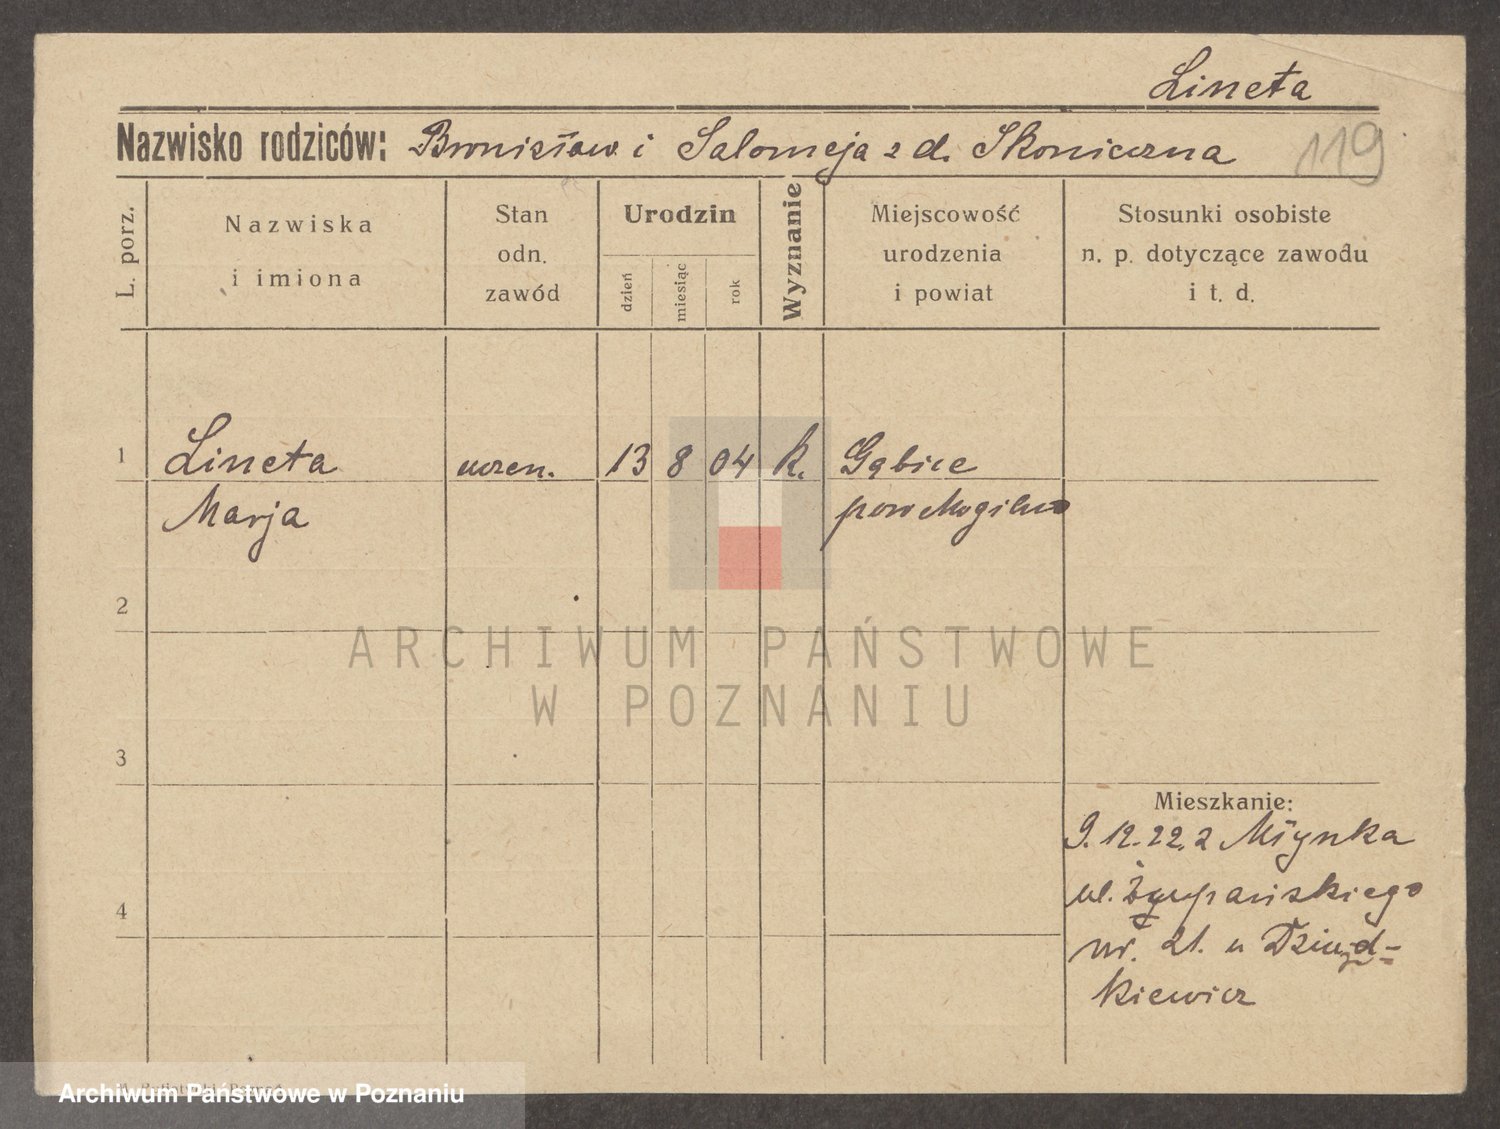 Lineta
Nazwisko rodziców: Bronisław i Salomeja z d. Skoniczna
119
L. porz.
Nazwiska
i imiona
Stan
odn.
zawód
Urodzin
dzień
miesiąc
rok
Wyznanie
Miejscowość
urodzenia
i powiat
Stosunki osobiste
n. p. dotyczące zawodu
i t. d.
1 Lineta uczen. 13 8 04 k. Gąbice
Marja pow Mogilno
2
ARCHIWUM PAŃSTWOWE
W POZNANIU
3
Mieszkanie:
9.12.22. z Młynka
4
ul. Żupańskiego
nr. 21. u
kiewicz
Poznań
Archiwum Państwowe w Poznaniu